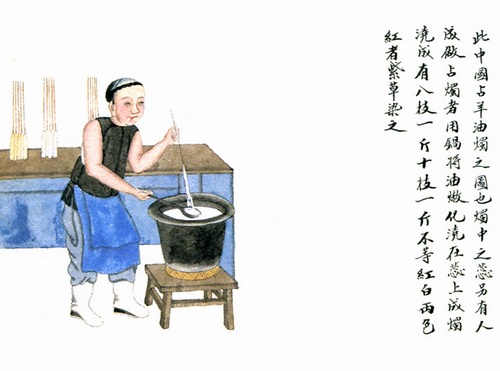 此中國占羊油燭之圖也燭中之蕊另有人
成做占燭者用鍋將油燉化澆在蕊上成燭
澆成有八枝一斤十枝一斤不等紅白兩色
紅者紫草染之